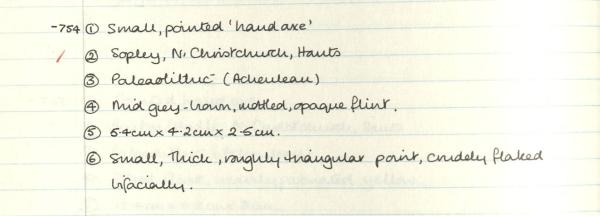 -754 ① Small, pointed 'hand axe'
② Sopley, N. Christchurch, Hants
③ Palaeolithic (Acheulean)
④ Mid grey-brown, mottled, opaque flint.
⑤ 5.4cm x 4.2cm x 2.5cm.
⑥ Small, Thick, roughly triangular point, crudely flaked
bifacially.